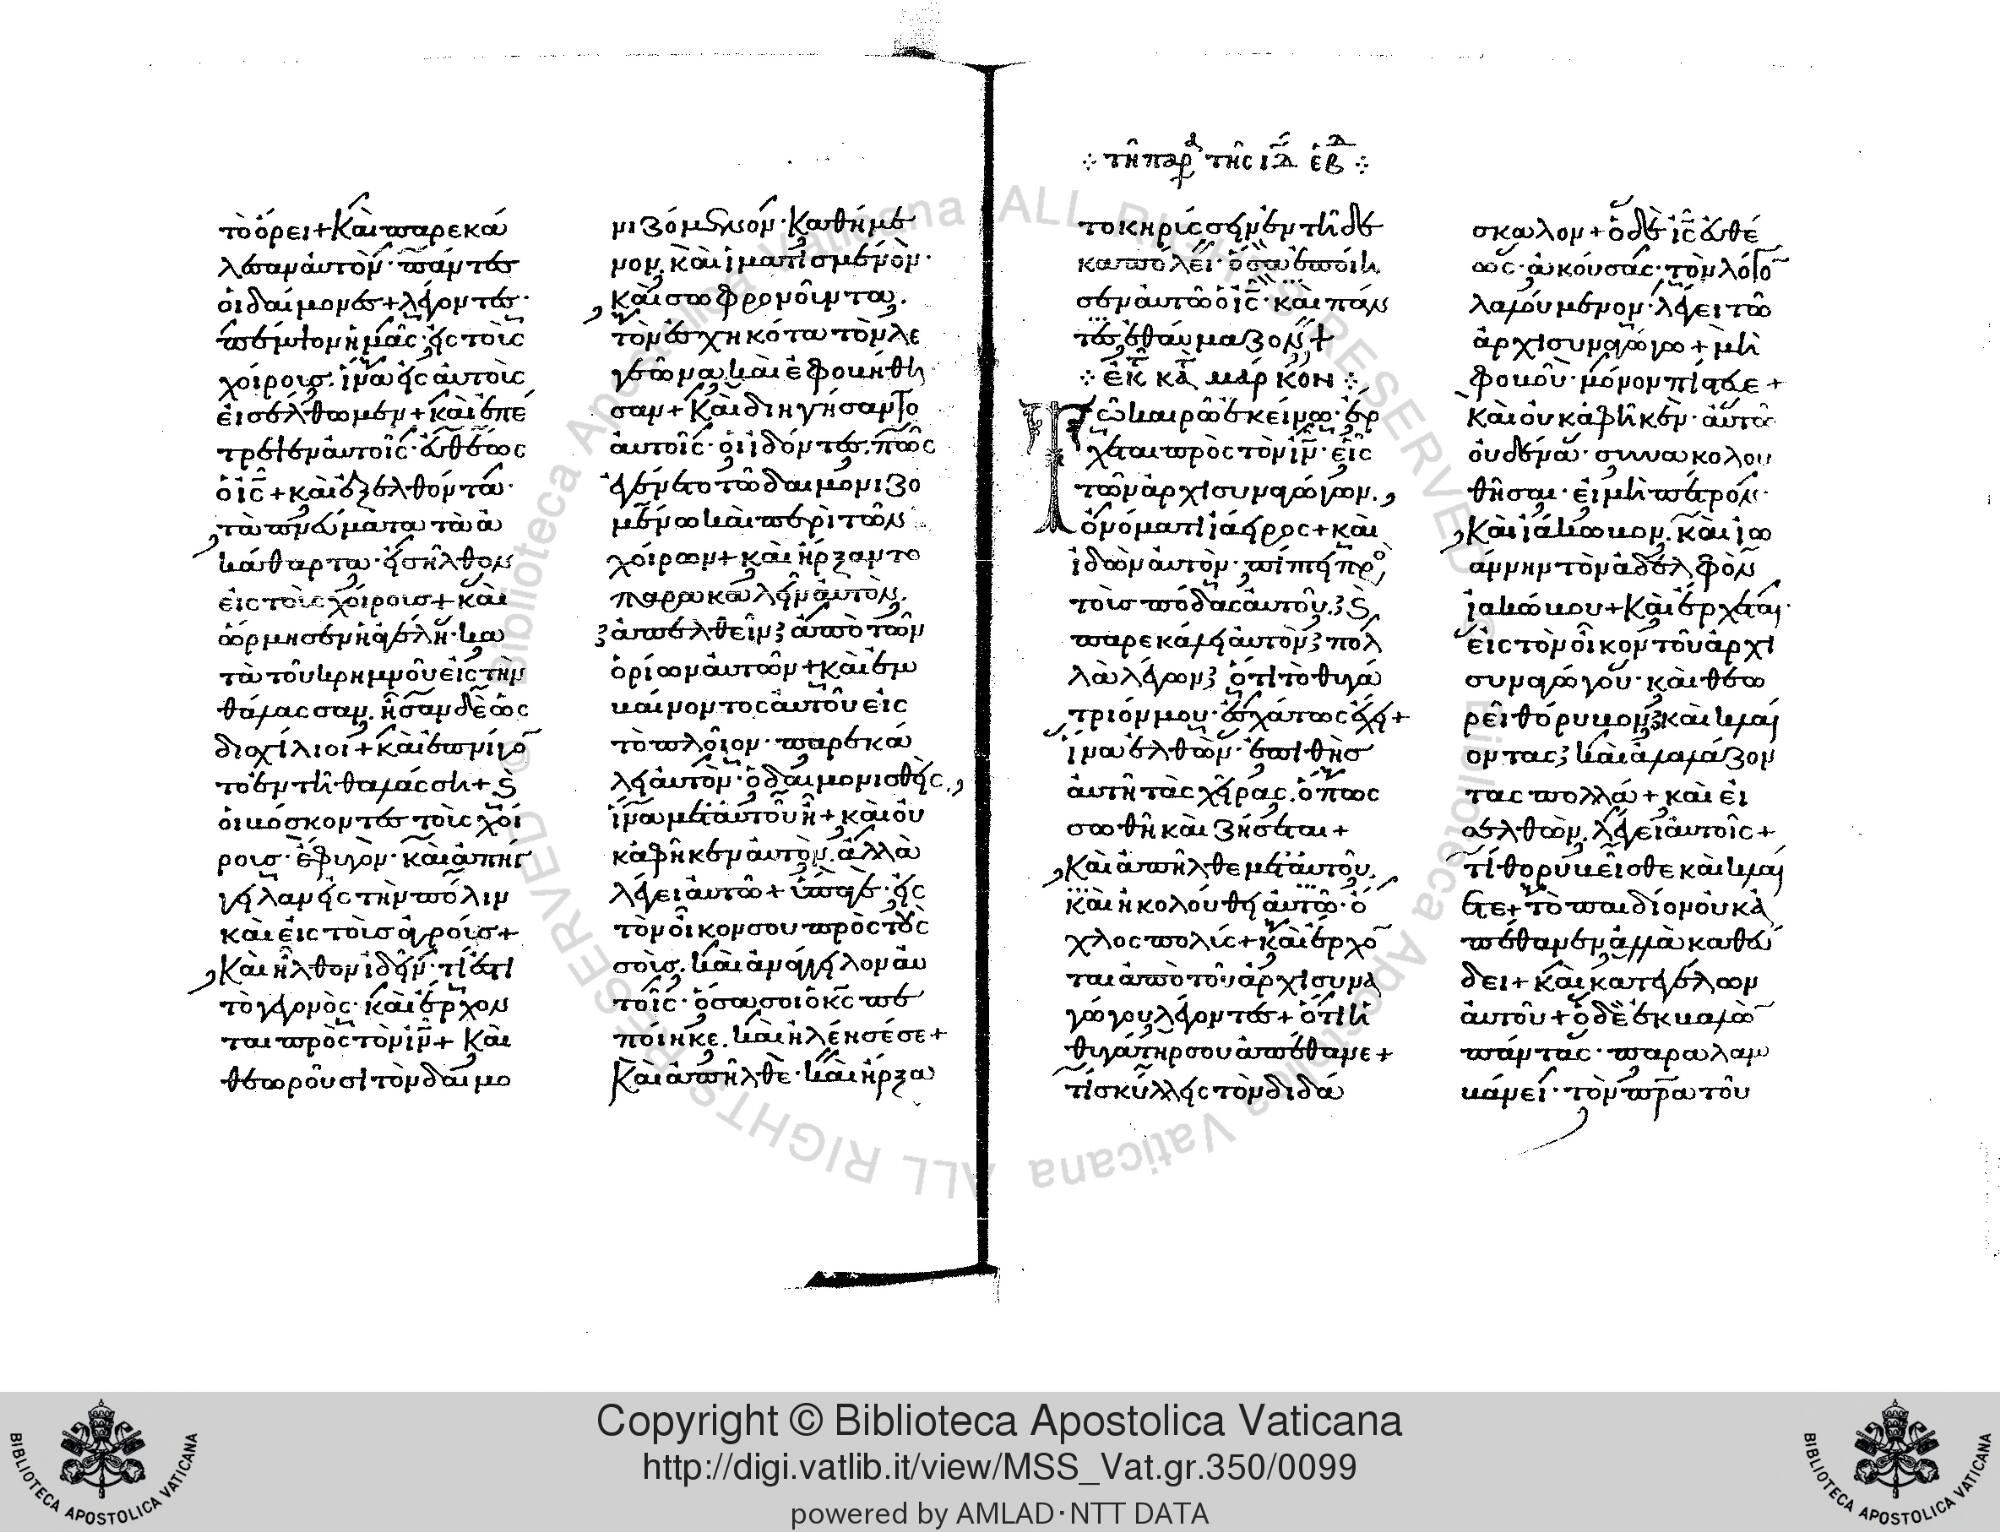 τὸ ὄρει + Καὶ παρεκά
λεσαν αὐτὸν · πάντες
οἱ δαίμονες + λέγοντες ·
πέμψον ἡμᾶς · εἰς τοὺς
χοίρους · ἵνα εἰς αὐτοὺς
εἰσέλθωμεν + καὶ ἐπέ
τρεψεν αὐτοῖς · εὐθέως
ὁ ις + καὶ ἐξελθόντα ·
τὰ πνεύματα τὰ ἀ
κάθαρτα · εἰσῆλθον
εἰς τοὺς χοίρους + καὶ
ὥρμησεν ἡ ἀγέλη · κα
τὰ τοῦ κρημνοῦ εἰς τὴν
θάλασσαν · ἦσαν δὲ ὡς
δισχίλιοι + καὶ ἐπνίγο
το ἐν τῇ θαλάσσῃ + ϗ
οἱ βόσκοντες τοὺς χοί
ρους · ἔφυγον · καὶ ἀπήγ
γειλαν εἰς τὴν πόλιν
καὶ εἰς τοὺς ἀγρούς +
Καὶ ἦλθον ἰδεῖν · τί ἐστι
τὸ γεγονὸς · καὶ ἔρχον
ται πρὸς τὸν ιν + Καὶ
θεωροῦσι τὸν δαιμο
νιζόμενον · καθήμε
νον καὶ ἱματισμένον ·
καὶ σωφρονοῦντα ·
τὸν ἐσχηκότα τὸν λε
γεῶνα καὶ ἐφοβήθη
σαν + Καὶ διηγήσαντο
αὐτοῖς · οἱ ἰδόντες · πῶς
ἐγένετο τῷ δαιμονιζο
μένῳ καὶ περὶ τῶν
χοίρων + καὶ ἤρξαντο
παρακαλεῖν αὐτὸν ·
ἀπελθεῖν ἀπὸ τῶν
ὁρίων αὐτῶν + καὶ ἐμ
βαίνοντος αὐτοῦ εἰς
τὸ πλοῖον · παρεκά
λει αὐτὸν · ὁ δαιμονισθείς ·
ἵνα μετ' αὐτοῦ ᾖ + καὶ οὐ
κ ἀφῆκεν αὐτὸν · ἀλλὰ
λέγει αὐτῷ + ὕπαγε · εἰς
τὸν οἶκόν σου πρὸς τοὺς
σοὺς · καὶ ἀνάγγειλον αὐ
τοῖς · ὅσα σοι ὁ κς πε
ποίηκε · καὶ ἠλέησέ σε +
Καὶ ἀπῆλθε · καὶ ἤρξα
⁘ τῇ παρ τῆς ιδ ἑβδ ⁘
το κηρύσσειν ἐν τῇ δε
καπόλει · ὅσα ἐποίη
σεν αὐτῷ ὁ ις · καὶ πάν
τες ἐθαύμαζον +
⁘ ἐκ κατὰ μάρκον ⁘
Τῷ καιρῷ ἐκείνῳ · ἔρ
χεται πρὸς τὸν ιν · εἷς
τῶν ἀρχισυναγώγων ·
ὀνόματι ἰάειρος + καὶ
ἰδὼν αὐτὸν · πίπτει πρὸ
τοὺς πόδας αὐτοῦ · ϗ
παρεκάλει αὐτὸν πολ
λὰ λέγων · ὅτι τὸ θυγά
τριόν μου · ἐσχάτως ἔχει +
ἵνα ἐλθὼν · ἐπιθῇς
αὐτῇ τὰς χεῖρας · ὅπως
σωθῇ καὶ ζήσεται +
Καὶ ἀπῆλθε μετ' αὐτοῦ ·
καὶ ἠκολούθει αὐτῷ · ὄ
χλος πολύς + καὶ ἔρχο
ται ἀπὸ τοῦ ἀρχισυνα
γώγου λέγοντες + ὅτι ἡ
θυγάτηρ σου ἀπέθανε +
τί σκύλλεις τὸν διδά
σκαλον + ὁ δὲ ις εὐθέ
ως · ἀκούσας · τὸν λόγο
λαλούμενον · λέγει τῷ
ἀρχισυναγώγῳ + μὴ
φοβοῦ · μόνον πίστευε +
Καὶ οὐκ ἀφῆκεν · αὐτῷ
οὐδένα · συνακολου
θῆσαι · εἰ μὴ πέτρον ·
Καὶ ἰάκωβον · καὶ ἰω
άννην τὸν ἀδελφὸν
ἰακώβου + Καὶ ἔρχεται ·
εἰς τὸν οἶκον τοῦ ἀρχι
συναγώγου · καὶ θεω
ρεῖ θόρυβον καὶ κλαί
οντας καὶ ἀλαλάζον
τας πολλά + καὶ εἰ
σελθὼν · λέγει αὐτοῖς +
τί θορυβεῖσθε καὶ κλαί
ετε + τὸ παιδίον οὐκ ἀ
πέθανεν ἀλλὰ καθεύ
δει + καὶ κατεγέλων
αὐτοῦ + ὁ δὲ ἐκβαλὼ
πάντας · παραλαμ
βάνει · τὸν πρα τοῦ
Copyright © Biblioteca Apostolica Vaticana
http://digi.vatlib.it/view/MSS_Vat.gr.350/0099
powered by AMLAD·NTT DATA